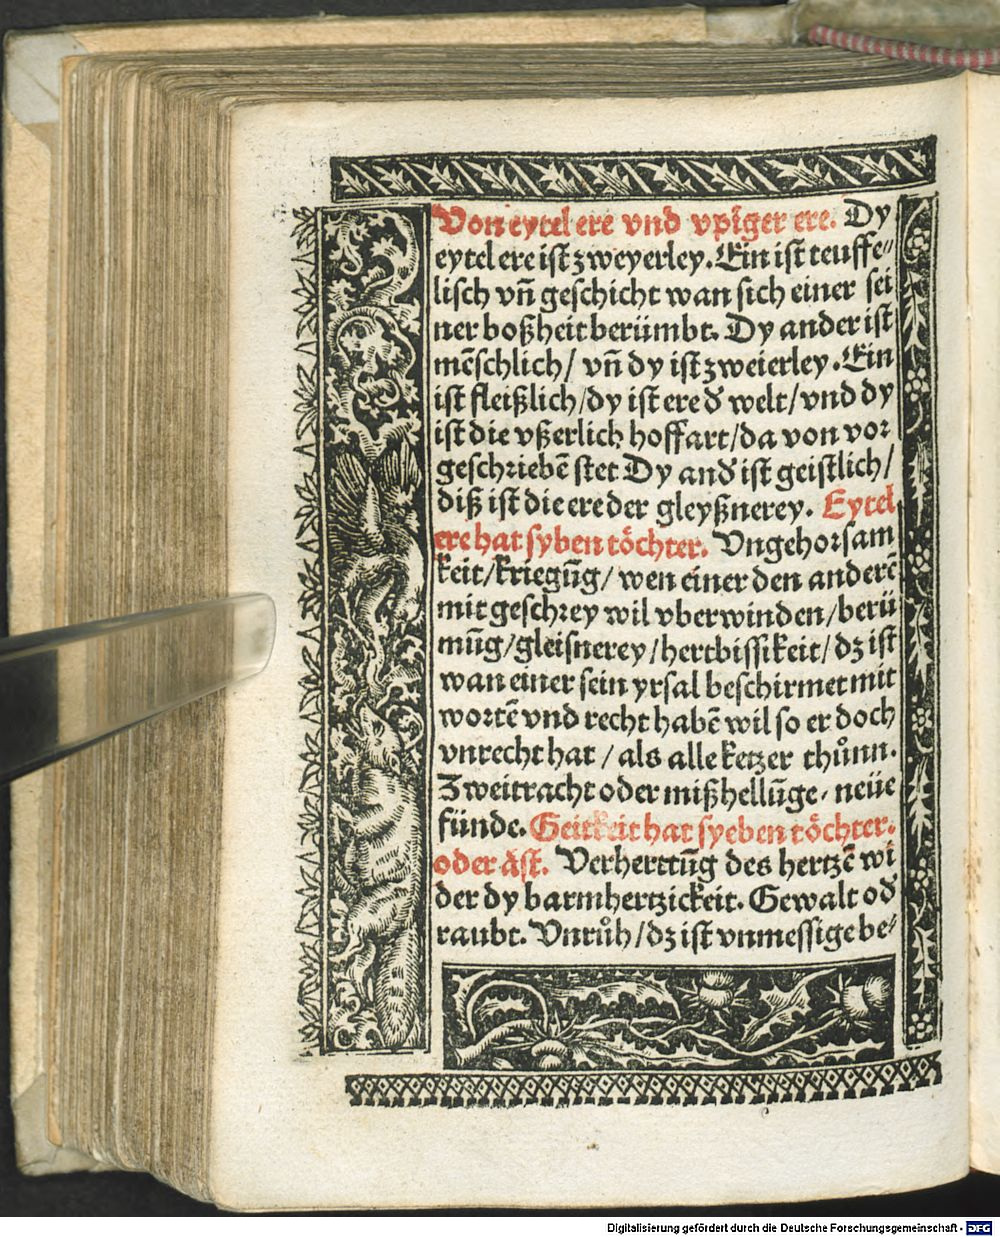 Von eytel ere vnd vpīger ere. Dy
eytel ere ist zweyerley. Ein ist teuffe⸗
lisch vñ geschicht wan sich einer sei
ner boßheit berümbt. Dy ander ist
mēschlich/ vñ dy ist zweierley. Ein
ist fleißlich/dy ist ere d̄ welt/vnd dy
ist die vßerlich hoffart/da von vor
geschriebē stet Dy and̄ ist geistlich/
diß ist die ere der gleyßnerey. Eytel
ere hat syben töchter. Vngehorsam
keit/kriegūg/ wen einer den anderē
mit geschrey wil vberwinden/berü
mūg/gleisnerey/hertbissikeit/dz ist
wan einer sein yrsal beschirmet mit
wortē vnd recht habē wil so er doch
vnrecht hat / als alle ketzer thůnn.
Zweitracht oder mißhellūge, neüe
fünde. Geitkeit hat syeben töchter.
oder äst. Verherttūg des hertzē wi
der dy barmhertzickeit. Gewalt od̄
raubt. Vnrůh/dz ist vnmessige be⸗
Digitalisierung gefördert durch die Deutsche Forschungsgemeinschaft - DFG